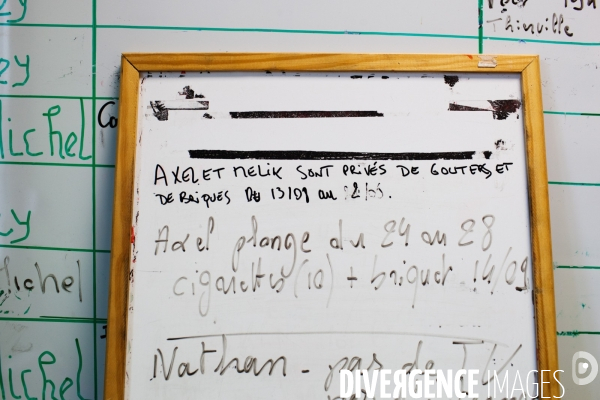 ey
Thinville
ey
Michel
Co
AXEL ET MELIK SONT PRIVÉS DE GOUTERS, ET
DE BRIQUES DU 13/09 au
ey
Axel plonge du 24 au 28
Michel
cigarettes (10) + briquet 14/09
Nathan - pas de
Michel
DIVERGENCE IMAGES